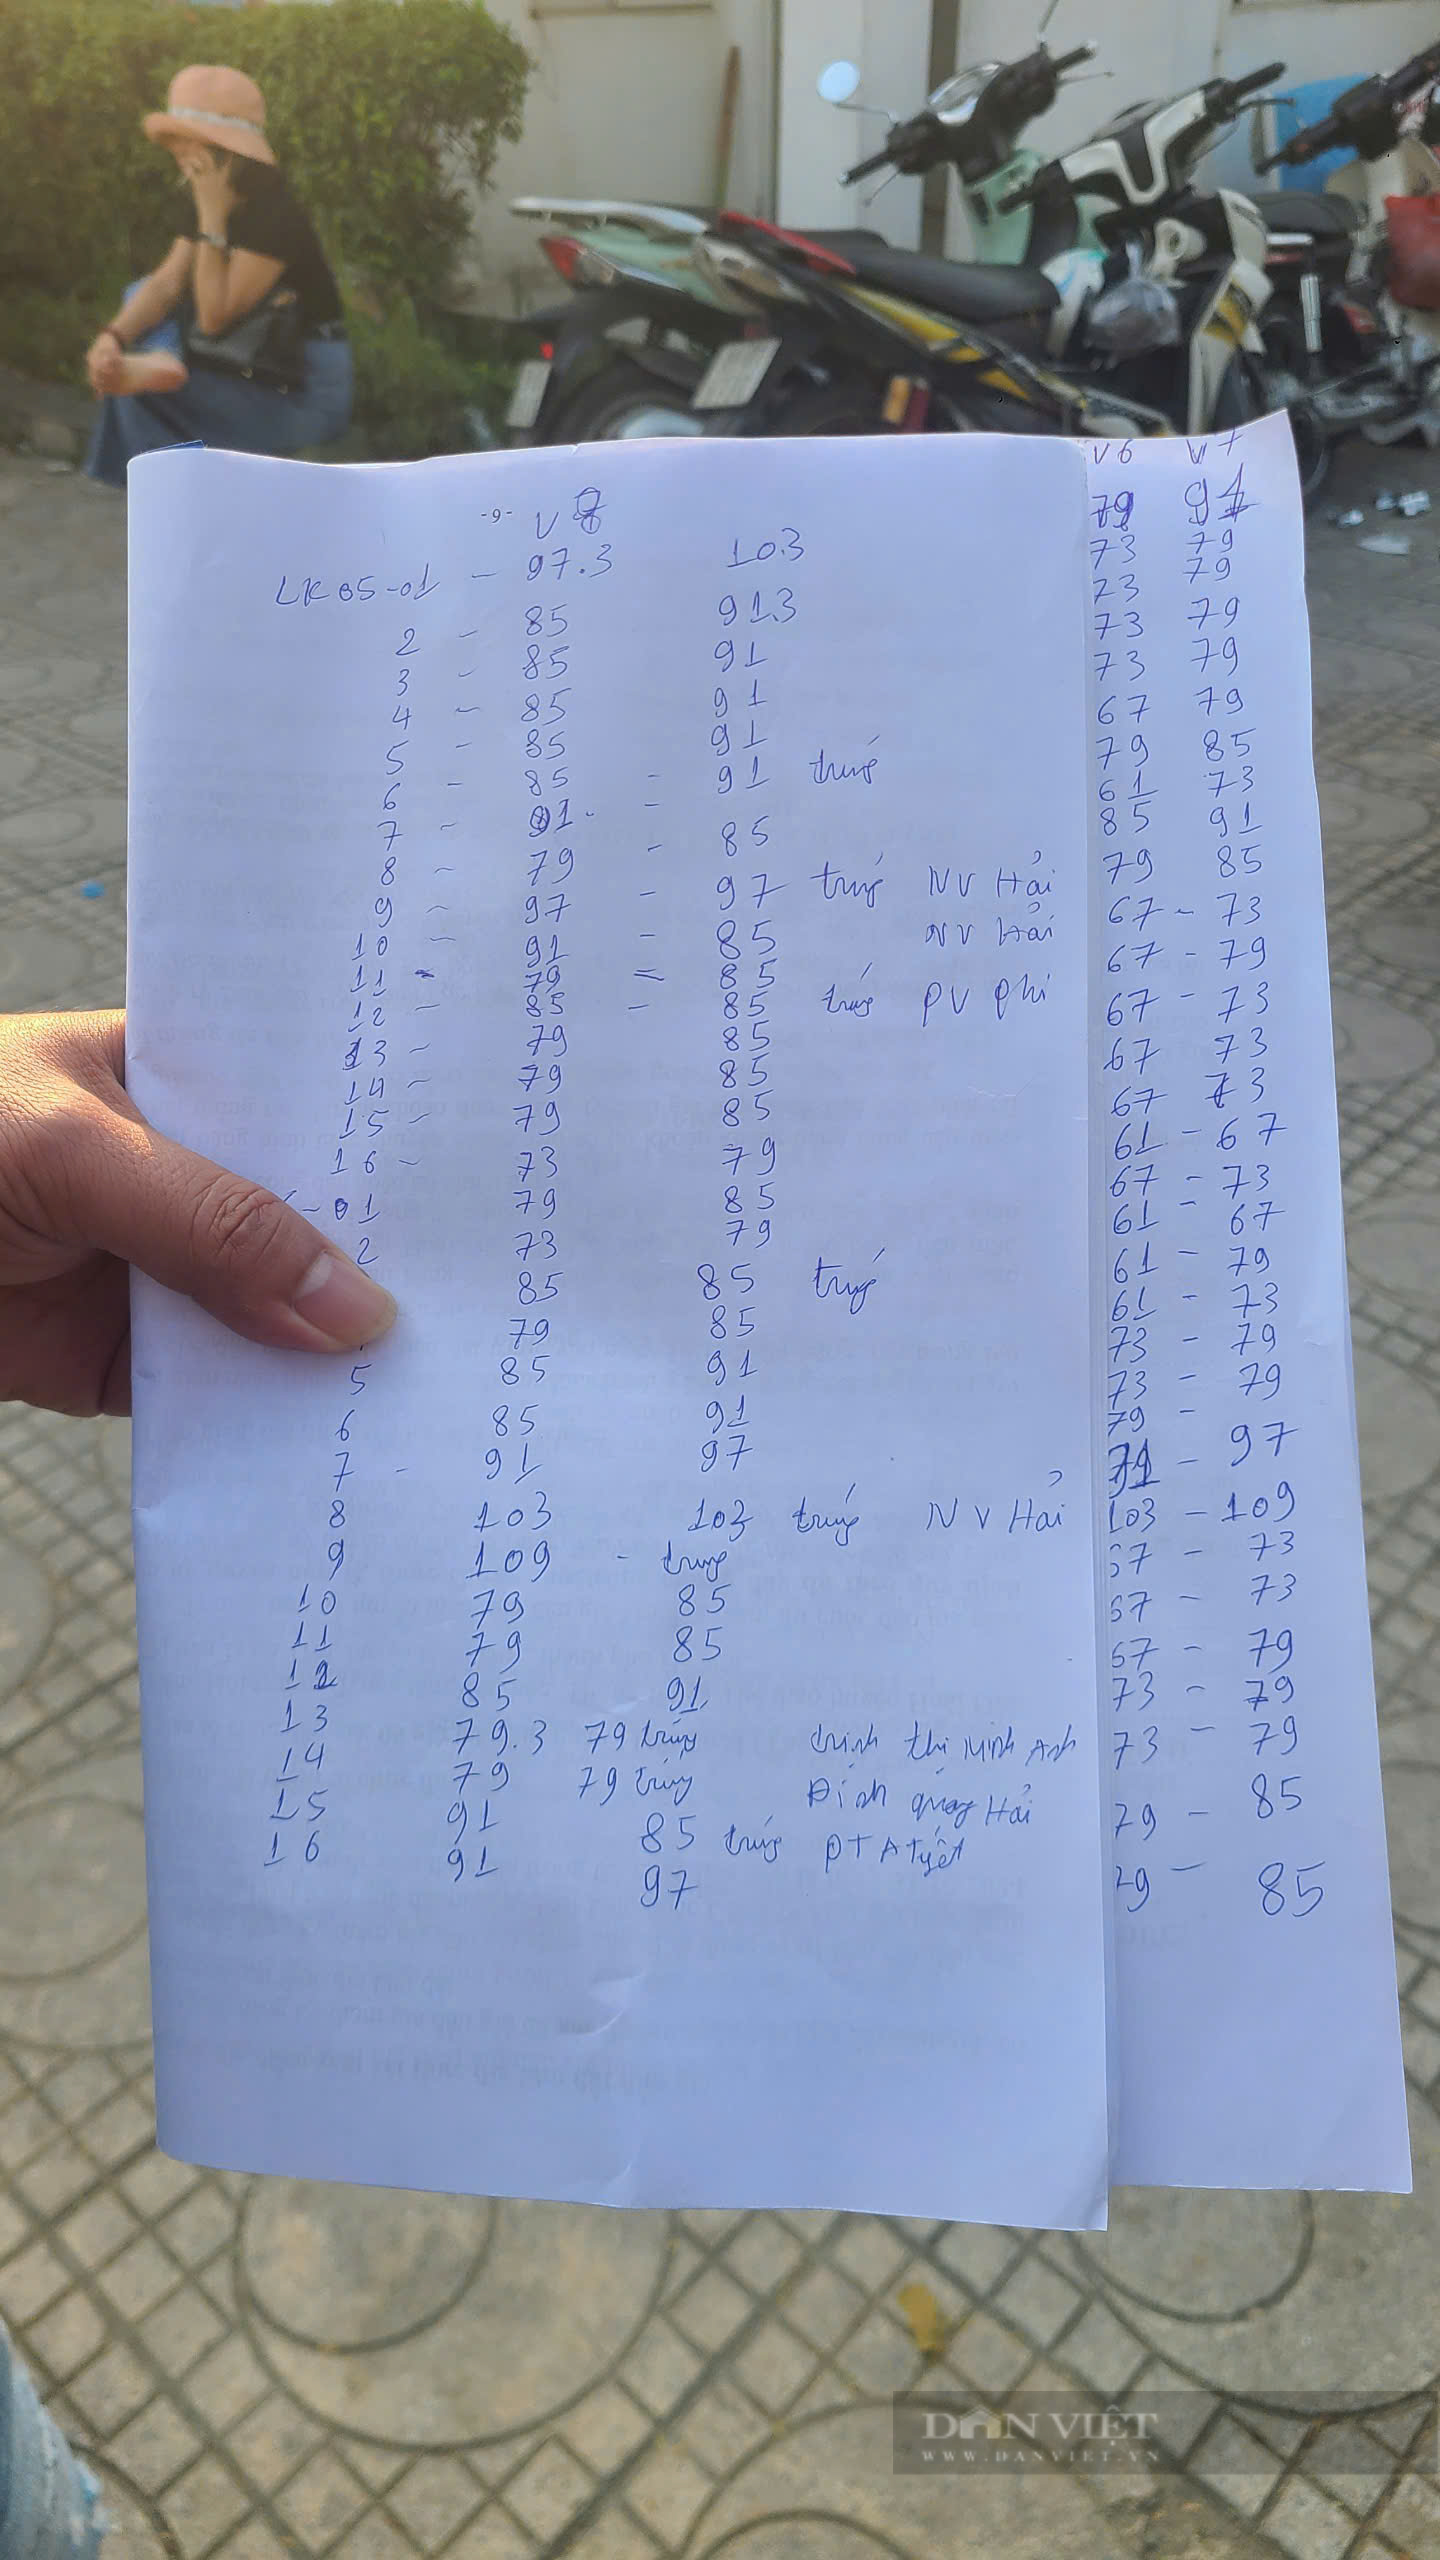 -6- V 8
LK 05-01 - 97.3 103
2 - 85 913
3 - 85 91
4 - 85 91
5 - 85 91
6 - 85 - 91 trúng
7 - 91. -
8 - 79 - 85
9 - 97 - 97 trúng NV Hải
10 - 91 - 85 NV Hải
11 - 79 = 85
12 - 85 - 85 trúng PV Phi
13 - 79 85
14 - 79 85
15 - 79 85
16 - 73 79
-01 79 85
2 73 79
85 85 trúng
79 85
5 85 91
6 85 91
7 - 91 97
8 103 103 trúng NV Hải
9 109 - trúng
10 79 85
11 79 85
12 85 91
13 79.3 79 trúng trịnh thị Minh Anh
14 79 79 trúng Đinh quang Hải
15 91 85 trúng PTA Tuyết
16 91 97
V6 V7
79 91
73 79
73 79
73 79
73 79
67 79
79 85
61 73
85 91
79 85
67 - 73
67 - 79
67 - 73
67 73
67 73
61 - 67
67 - 73
61 - 67
61 - 79
61 - 73
73 - 79
73 - 79
79 -
91 - 97
103 - 109
67 - 73
67 - 73
67 - 79
73 - 79
73 - 79
79 - 85
79 - 85
DÂN VIỆT
WWW.DANVIET.VN